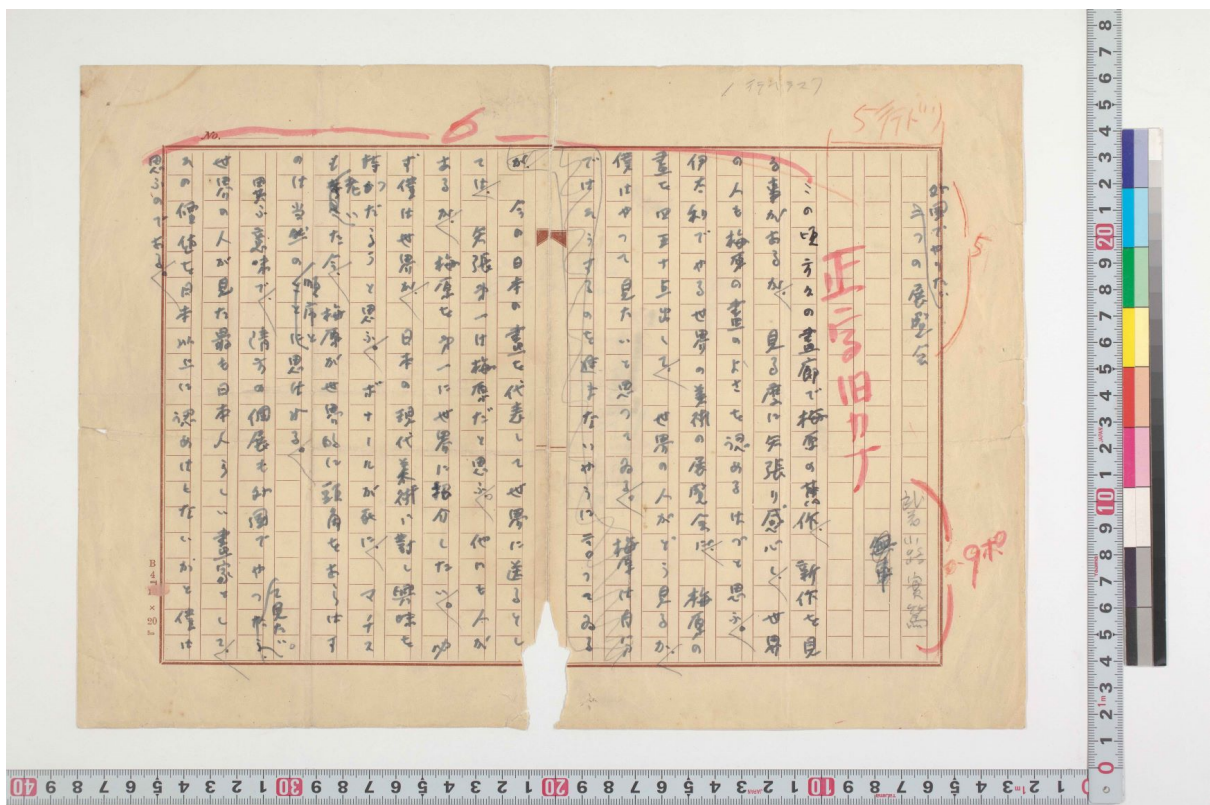 外国でやりたい
二つの展覧会
武者小路實篤
5行ドリ
5
9ポ
正字旧カナ
6
No.
この頃方々の畫廊で梅原の旧作、新作を見
る事があるが、見る度に矢張り感心し、世界
の人も梅原の畫のよさを認めるはずと思ふ。
伊太利でやる世界の美術の展覧会に、梅原の
畫を四五十点出して、世界の人がどう見るか、
僕はやつて見たいと思つてゐる。梅原は自分
ではさうするのを進まないやうに云つてゐる
が。
今の日本の畫を代表して世界に送るとし
ては、矢張第一は梅原だと思ふ。他にも人が
あるが、梅原を第一に世界に紹介したい。
ず僕は世界が、日本の現代美術に対し興味を
持つだらうと思ふ。ボナールが死に、マチス
も老いた今、梅原が世界的に頭角をあらはす
のは当然の順序と思はれる。
異ふ意味で、清方の個展も外国でやつて見たい。
世界の人が見た最も日本人らしい畫家として、
その価値を日本以上に認めはしないかと僕は
思ふのである。
B4 20×20